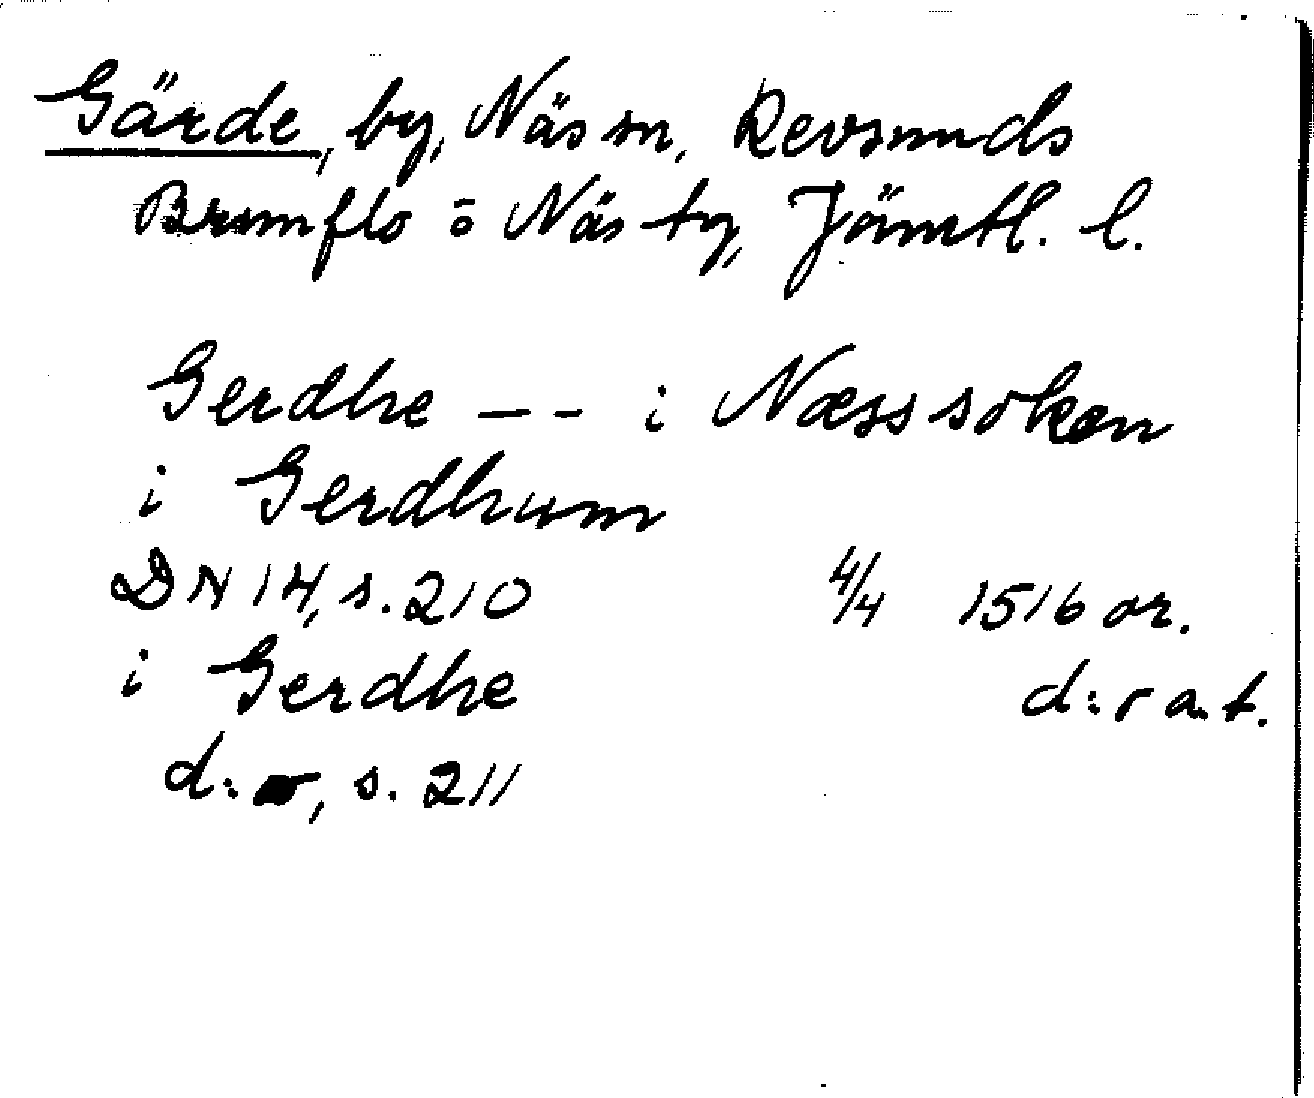 Gärde, by, Näs sn, Revsunds
Brunflo o Näs tg, Jämtl. l.
Gerdhe -- i Næss soken
i Gerdhum
DN 14, s. 210 4/4 1516 or.
i Gerdhe d:r a. t.
d:o, s. 211